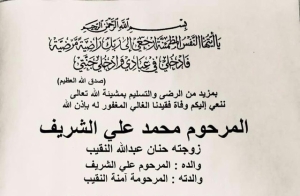 بسم الله الرحمن الرحيم
يا أيتها النفس المطمئنة ارجعي إلى ربك راضية مرضية
فادخلي في عبادي وادخلي جنتي
(صدق الله العظيم)
بمزيد من الرضى والتسليم بمشيئة الله تعالى
ننعي إليكم وفاة فقيدنا الغالي المغفور له بإذن الله
المرحوم محمد علي الشريف
زوجته حنان عبدالله النقيب
والده : المرحوم علي الشريف
والدته : المرحومة آمنة النقيب